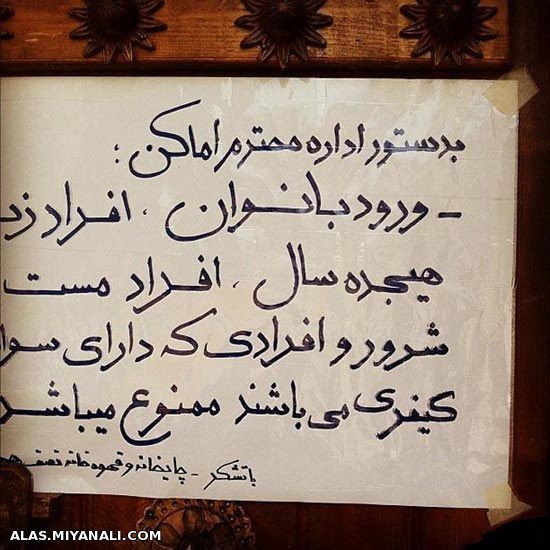 بدستور اداره محترم اماکن :
- ورود بانوان ، افراد زیر
هیجده سال ، افراد مست
شرور و افرادی که دارای سوا
کیفری می باشند ممنوع میباشد
با تشکر - چایخانه و قهوه خانه
ALAS.MIYANALI.COM